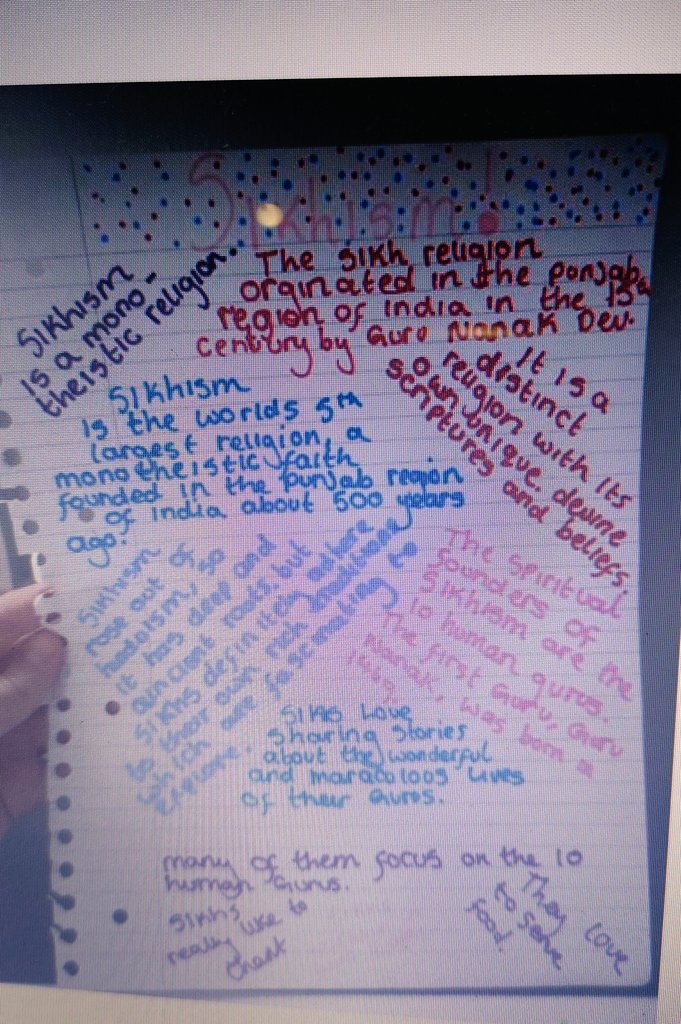 Sikhism!
Sikhism
is a mono-
theistic religion.
The Sikh religion
orginated in the ponjaba
region of India in the 15
century by Guru Nanak Dev.
It is a
distinct
religion with its
own unique. devine
scriptures and beliefs.
Sikhism
is the worlds 5th
largest religion, a
monotheistic faith
founded in the punjab region
of india about 500 years
ago.
Sikhism
rose out of
hedoism, so
it has deep and
ancient roots. but
Sikhs definitely adhere
to their own rich traditions
which are fascinating to
The spiritual
founders of
Sikhism are the
10 human gurus.
The first Guru, Guru
Nanak, was born a
1469.
Sikhs Love
sharing stories
about the wonderful
and maracoloos lives
of their Guros.
many of them focus on the 10
human Gurus.
Sikhs
really like to
chant
They love
to serve
food.